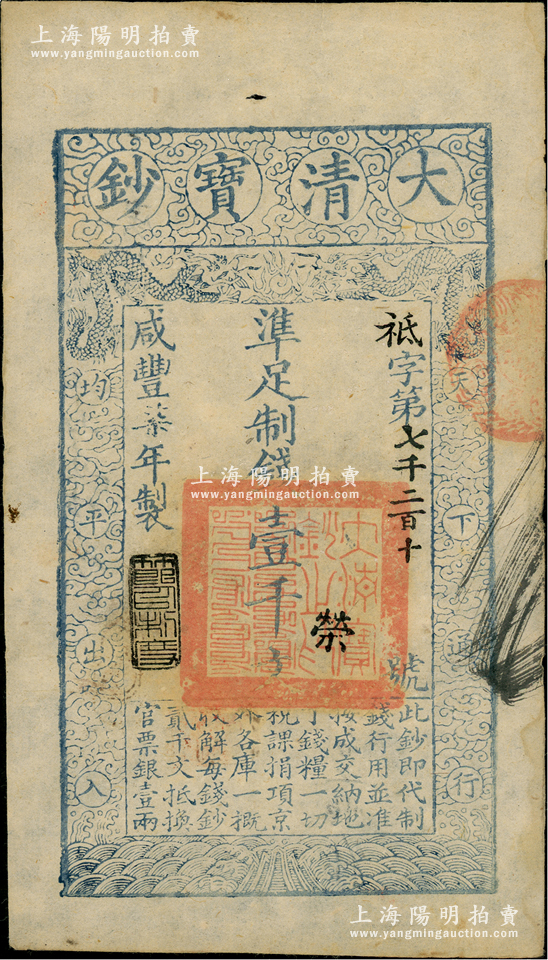 上海陽明拍賣
www.yangmingauction.com
大清寶鈔
天下通行
均平出入
祗字第七千二百十號
準足制錢壹千文
咸豐柒年製
榮
此鈔即代制
錢行用並准
按成交納地
丁錢糧一切
稅課捐項京
外各庫一概
收解每錢鈔
貳千文抵換
官票銀壹兩
上海陽明拍賣
www.yangmingauction.com
上海陽明拍賣
www.yangmingauction.com